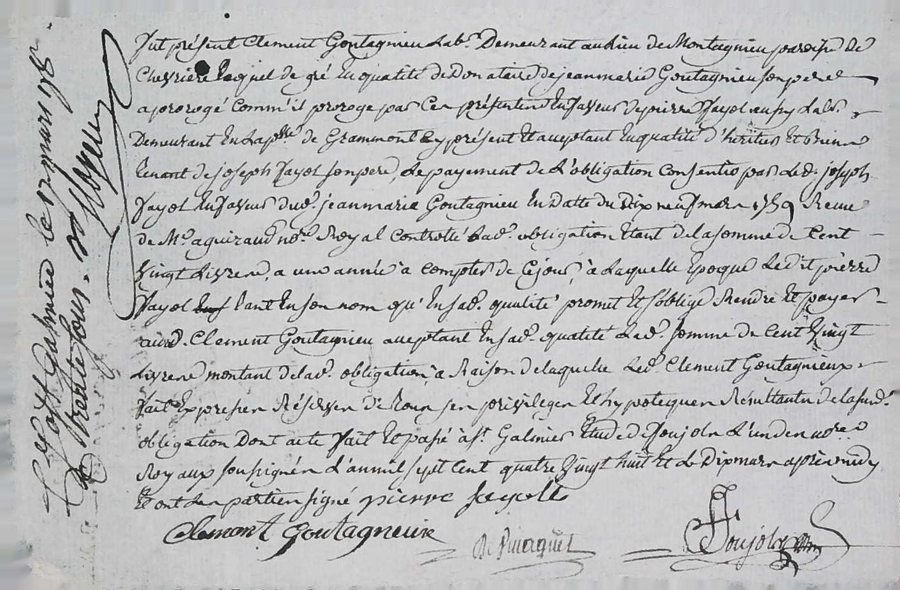 fut présent Clement Goutagnieu Labr. Demeurant au Lieu de Montagnieu paroisse de
Chevriere Lequel de gré En qualité de Donataire de jeanmarie Goutagnieu son pere
a prorogé Comme il proroge par Ces présentes En faveur de pierre fayol aussy Labr.
Demeurant En La psse. de Grammont Cy présent Et acceptant En qualité d'heritier Et Bien
tenant de joseph fayol son pere, Le payement de L'obligation Consentie par Led. joseph
fayol En faveur dud. jeanmarie Goutagnieu En datte du Dix neuf mars 1759 Recue
de Me. aguiraud nore. Royal Controllé Lad. obligation Etant de la somme de Cent
Vingt Livres, a une année à Compter de Ce jour, à Laquelle Epoque Ledit pierre
fayol tant En son nom qu'En sad. qualité promet Et s'oblige Rendre Et payer
aud. Clement Goutagnieu acceptant En sad. qualité Lad. somme de Cent Vingt
Livres montant de lad. obligation, a Raison de laquelle Led. Clement Goutagnieux
fait Expresses Réserves de tous ses privileges Et hypoteques Résultants de la susd.
obligation Dont acte fait Et passé a St. Galmier Etude de foujols L'un des nores.
Royaux soussignés L'an mil sept Cent quatre Vingt huit Et Le Dix mars après midy
Et ont Les parties signé pierre fayolle
Clemant Goutagneux
foujols
a St. Galmier le 10 mars 1788